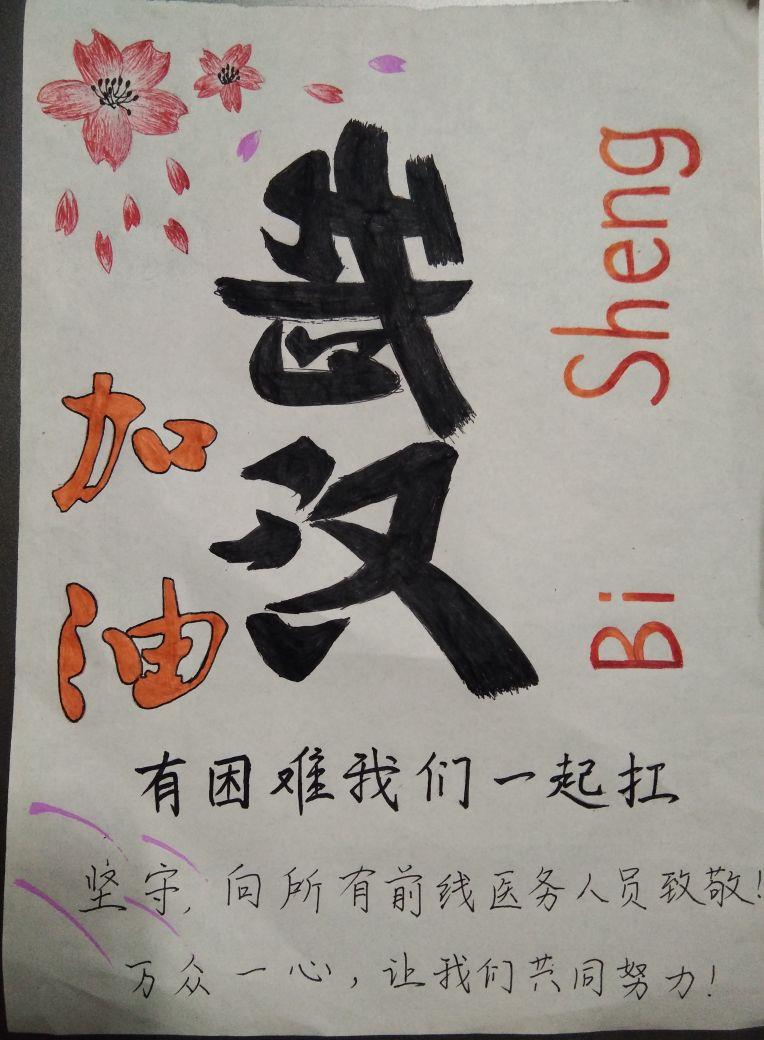 武汉
加油
Bi Sheng
有困难我们一起扛
坚守,向所有前线医务人员致敬!
万众一心,让我们共同努力!